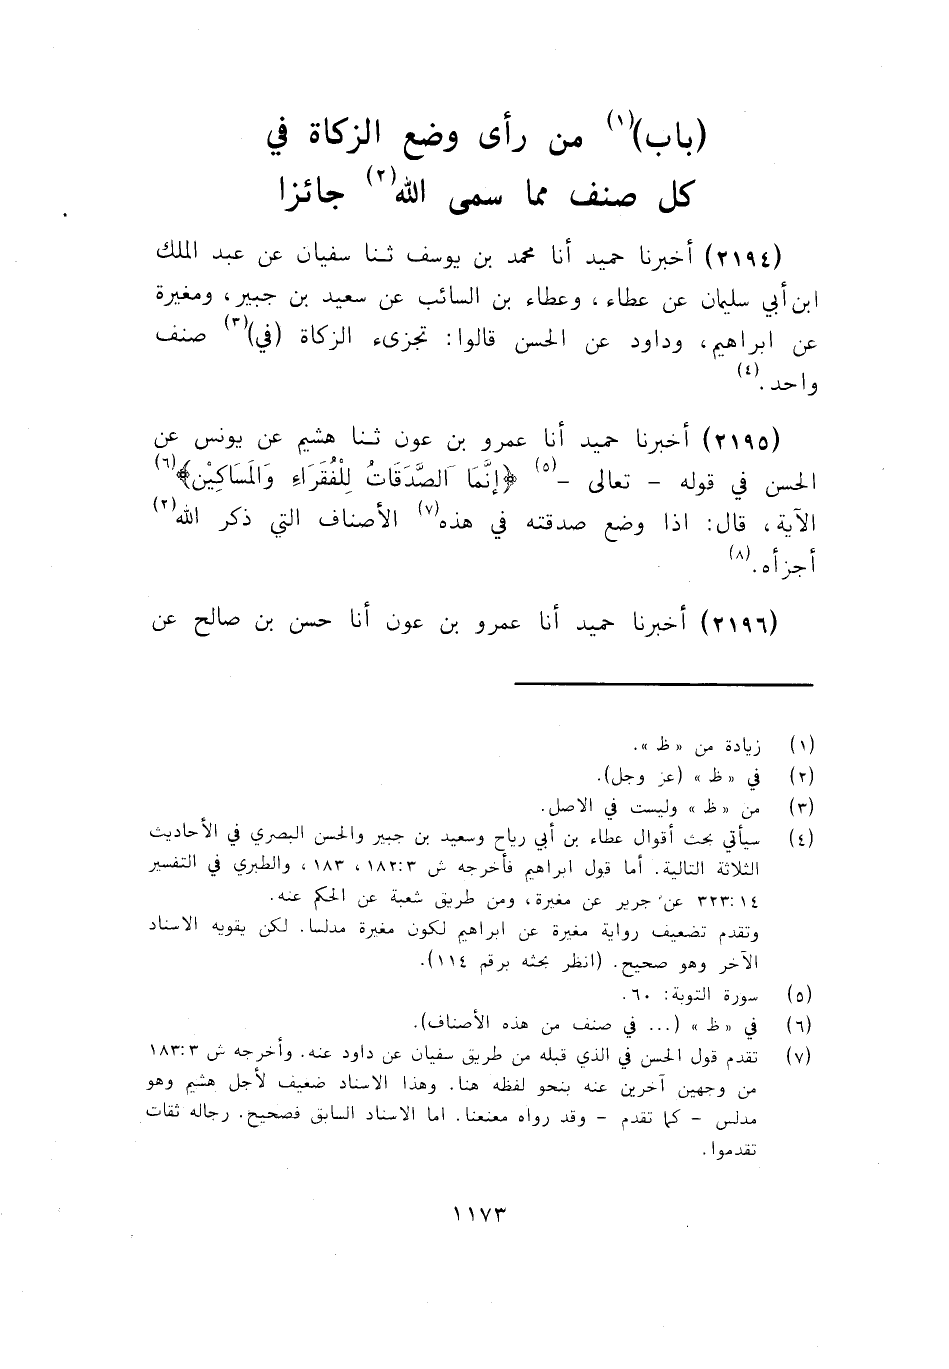 (باب)(١) من رأى وضع الزكاة في
كل صنف مما سمى الله(٢) جائزا
(٢١٩٤) أخبرنا حميد أنا محمد بن يوسف ثنا سفيان عن عبد الملك
ابن أبي سليمان عن عطاء، وعطاء بن السائب عن سعيد بن جبير، ومغيرة
عن ابراهيم، وداود عن الحسن قالوا: تجزىء الزكاة (في)(٣) صنف
واحد.(٤)
(٢١٩٥) أخبرنا حميد أنا عمرو بن عون ثنا هشيم عن يونس عن
الحسن في قوله - تعالى -(٥) ﴿إِنَّمَا الصَّدَقَاتُ لِلْفُقَرَاءِ وَالْمَسَاكِيْنِ﴾(٦)
الآية، قال: اذا وضع صدقته في هذه(٧) الأصناف التي ذكر الله(٢)
أجزأه.(٨)
(٢١٩٦) أخبرنا حميد أنا عمرو بن عون أنا حسن بن صالح عن
(١) زيادة من «ظ».
(٢) في «ظ» (عز وجل).
(٣) من «ظ» وليست في الاصل.
(٤) سيأتي بحث أقوال عطاء بن أبي رباح وسعيد بن جبير والحسن البصري في الأحاديث
الثلاثة التالية. أما قول ابراهيم فأخرجه ش ٣:١٨٢، ١٨٣، والطبري في التفسير
١٤:٣٢٣ عن جرير عن مغيرة، ومن طريق شعبة عن الحكم عنه.
وتقدم تضعيف رواية مغيرة عن ابراهيم لكون مغيرة مدلسا. لكن يقويه الاسناد
الآخر وهو صحيح. (انظر بحثه برقم ١١٤).
(٥) سورة التوبة: ٦٠.
(٦) في «ظ» (... في صنف من هذه الأصناف).
(٧) تقدم قول الحسن في الذي قبله من طريق سفيان عن داود عنه. وأخرجه ش ٣:١٨٣
من وجهين آخرين عنه بنحو لفظه هنا. وهذا الاسناد ضعيف لأجل هشيم وهو
مدلس - كما تقدم - وقد رواه معنعنا. اما الاسناد السابق فصحيح. رجاله ثقات
تقدموا.
١١٧٣